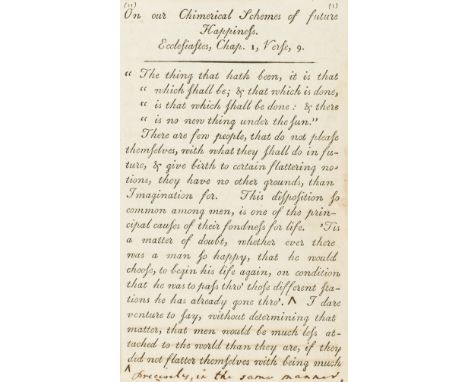 (21) (1)
On our Chimerical Schemes of future
Happineſs.
Eccleſiaſtes, Chap. 1, Verſe, 9.
" The thing that hath been, it is that
" which ſhall be; & that which is done,
" is that which ſhall be done: & there
" is no new thing under the ſun."
There are few people, that do not pleaſe
themſelves, with what they ſhall do in fu-
ture, & give birth to certain flattering no-
tions, they have no other grounds, than
Imagination for. This diſpoſition ſo
common among men, is one of the prin-
cipal cauſes of their fondneſs for life. 'Tis
a matter of doubt, whether ever there
was a man ſo happy, that he would
chooſe, to begin his life again, on condition
that he was to paſs thro' thoſe different ſta-
tions he has already gone thro'. ^ I dare
venture to ſay, without determining that
matter, that men would be much leſs at-
tached to the world than they are, if they
did not flatter themſelves with being much
^ preciſely, in the same manner,